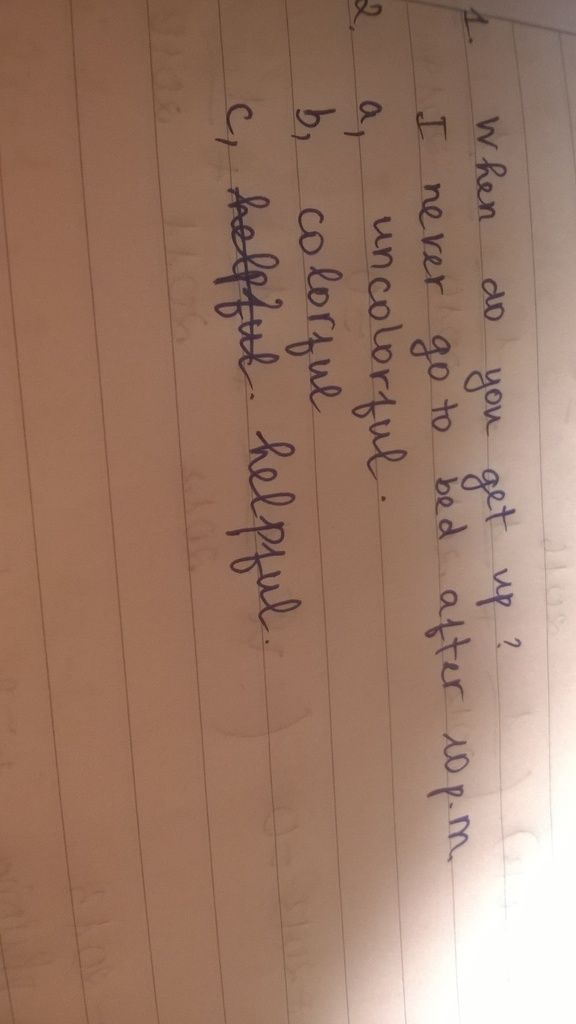 1. When do you get up?
I never go to bed after 10 p.m
2. a, uncolorful.
b, colorful
c, helpful. helpful.